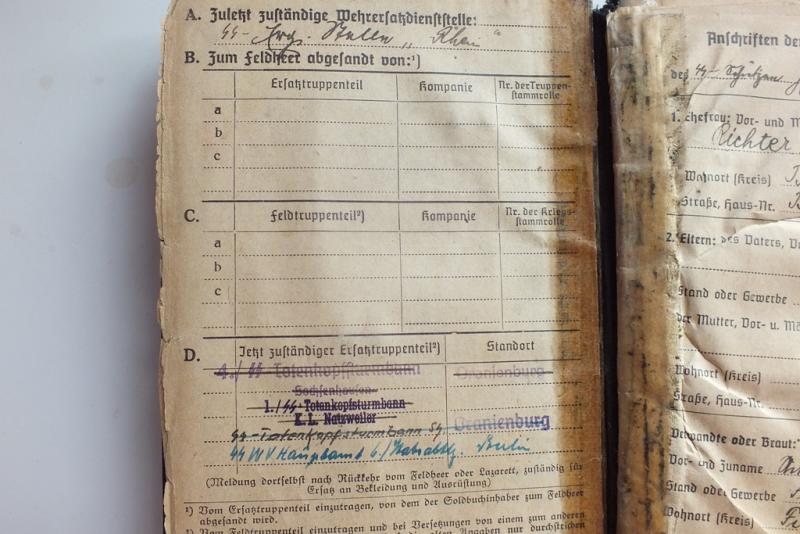 A. Zuletzt zuständige Wehrersatzdienststelle:
SS-Erg. Stelle „Rhein"
B. Zum Feldheer abgesandt von:¹)
Ersatztruppenteil Kompanie Nr. der Truppen-
stammrolle
a
b
c
C. Feldtruppenteil²) Kompanie Nr. der Kriegs-
stammrolle
a
b
c
D. Jetzt zuständiger Ersatztruppenteil²) Standort
4./SS Totenkopfsturmbann Oranienburg
Sachsenhausen
1./SS-Totenkopfsturmbann
K.L. Natzweiler Oranienburg
SS-Totenkopfsturmbann
SS WV Hauptamt Berlin
(Meldung dortselbst nach Rückkehr vom Feldheer oder Lazarett, zuständig für
Ersatz an Bekleidung und Ausrüstung)
¹) Vom Ersatztruppenteil einzutragen, von dem der Soldbuchinhaber zum Feldheer
abgesandt wird.
²) Vom Feldtruppenteil einzutragen und bei Versetzungen von einem zum anderen
alten Angaben nur durchstreichen
Anschriften der
des SS-Schützen
1. Ehefrau: Vor- und M
Richter
Wohnort (Kreis)
Straße, Haus-Nr.
2. Eltern: des Vaters, Vo
Stand oder Gewerbe
der Mutter, Vor- u. Mä
Wohnort (Kreis)
Straße, Haus-Nr.
Verwandte oder Braut:
Vor- und Zuname
Stand oder Gewerbe
Wohnort (Kreis)